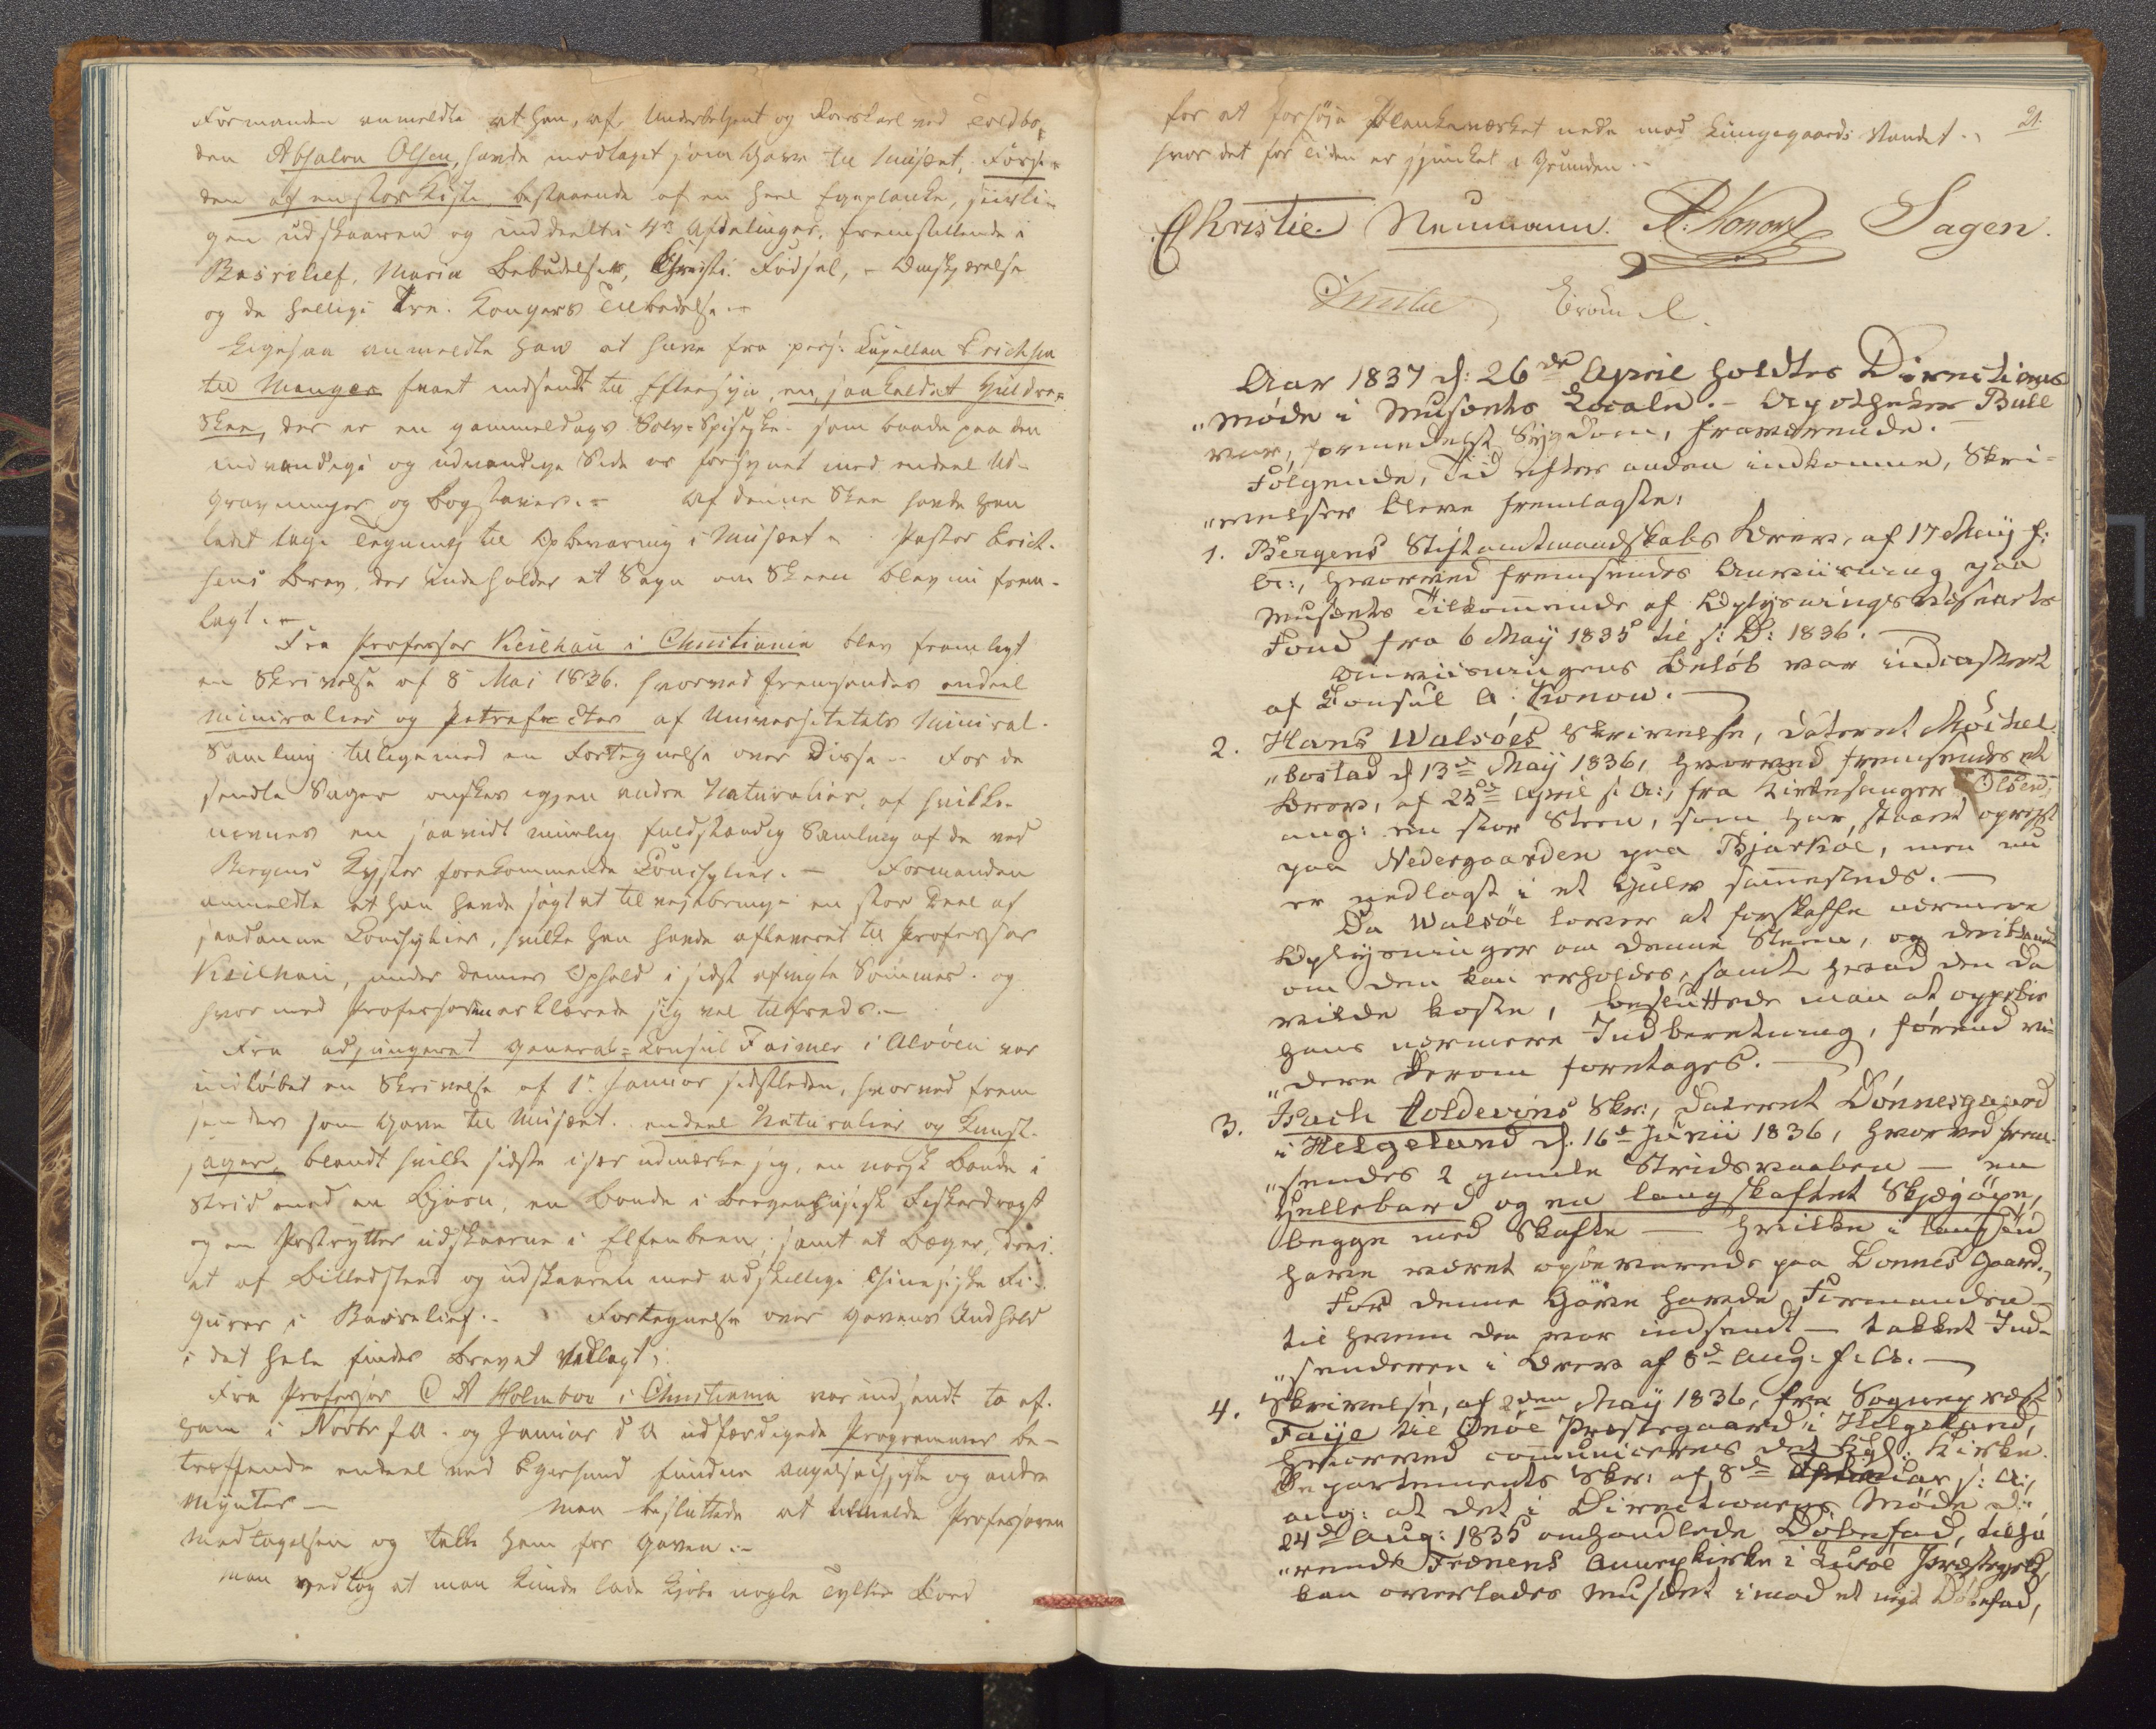 Formanden anmeldte at han, af Underbetjent og Kornskarl ved Toldbo-
den Absalon Olsen, havde modtaget som Gave til Museet, Forsi-
den af en stor Kiste, bestaaende af en heel Egeplanke, siirli-
gen udskaaren og inddeelt i 4re Afdelinger, fremstillende i
Basrelief, Maria Bebudelse, Christi Fødsel, - Omskjærelse
og de hellige Tre Kongers Tilbedelse. -
Ligesaa anmeldte han at have fra pers: Kapellan Erichsen
til Manger faaet indsendt til Eftersyn, en saakaldet Huldre-
Skee, der er en gammeldags Sølv-Spiseske - som baade paa den
indvendige og udvendige Side er forsynet med endeel Ud-
gravninger og Bogstaver. - Af denne Skee havde han
ladet tage Tegning til Opbevaring i Museet - Pastor Erich-
sens Brev, der indeholder et Sagn om Skeen blev nu frem-
lagt. -
Fra Professor Keilhau i Christiania blev fremlagt
en Skrivelse af 8 Mai 1836. hvorved fremsendes endeel
Mineralier og Petrefacter af Universitetets Mineral-
Samling tilligemed en Fortegnelse over Disse - For de
sendte Sager ønskes igjen andre Naturalier, af hvilke
nævnes en saavidt muelig fuldstændig Samling af de ved
Bergens Kyster forekommende Conchylier. - Formanden
anmeldte at han havde søgt at tilveiebringe en stor Deel af
saadanne Conchylier, hvilke han havde afleveret til Professor
Keilhau, under dennes Ophold i sidst afvigte Sommer. og
hvormed Professoren erklærede sig vel tilfreds. -
Fra adjungeret General-Consul Faimer i Alvøen var
indløbet en Skrivelse af 1ste Januar sidstleden, hvorved frem
sendes som Gave til Museet. endeel Naturalier og Kunst-
sager, blandt hvilke sidste især udmærke sig, en norsk Bonde i
Strid med en Bjørn, en Bonde i Bergenhusisk Fiskerdragt
og en Postrytter udskaarne i Elfenbeen; samt et Bæger, drei-
et af Billedsteen og udskaaren med adskillige chinesiske Fi-
gurer i Basrelief. - Fortegnelse over Gavens Indhold
i det hele findes Brevet vedlagt.
Fra Professor C A Holmboe i Christiania var indsendt to af
ham i Novbr f A. og Januar d A udfærdigede Programmer be-
treffende endeel ved Egersund fundne angelsachsiske og andre
Mynter - Man besluttede at tilmelde Professoren
Modtagelsen og takke ham for Gaven. -
Man vedtog at man kunde lade kjøbe nogle Tylter Bord
21.
for at forhøje Plankeværket nede mod Kungegaards Vandet.
hvor det for Tiden er sjunket i Grunden -
Christie. Neumann. A: Konow Sagen.
Aar 1837 d: 26de April holdtes Directions
"møde i Museets Locale. - Apotheker Bull
var, formedelst Sygdom, fraværende. -
Følgende, Tid efter anden indkomne, Skri-
"velser bleve fremlagte:
1. Bergens Stiftamtmandskabs Brev, af 17 Maÿ f:
A:, hvorved fremsendes Anviisning paa
Museets Tilkommende af Oplysningsvæsenets
Fond fra 6 Maÿ 1835 til s: D: 1836. -
Anviisningens Beløb var indcasseret
af Consul A: Konow. -
2. Hans Walsøes Skrivelse, dateret Möchel-
"bostad d 13de Maÿ 1836, hvorved fremsendes et
Brev, af 25de April s: A:, fra Kirkesanger Olsen,
ang: en stor Steen, som har staaet opreist
paa Nedergaarden paa Bjarkøe, men nu
er nedlagt i et Gulv sammesteds. -
Da Walsøe lover at forskaffe nærmere
Oplysninger om denne Steen, og deriblandt
om den kan erholdes, samt hvad den da
vilde koste, besluttede man at oppebie
hans nærmere Indberetning, førend vi-
"dere derom foretages. -
3. Isach Coldevins Skr:, dateret Dønnesgaard
i Helgeland d. 16de Junii 1836, hvorved frem-
"sendes 2 gamle Stridsvaaben - en
Hellebard og en langskaftet Skjægöxe,
begge med Skafte - hvilke i lang Tid
have været opbevarede paa Dønnes Gaard.
For denne Gave havde Formanden -
til hvem den var indsendt - takket Ind-
"senderen i Brev af 8de Aug: f: A. -
4. Skrivelse, af 2den Maÿ 1836, fra Sogneprest
Faije til Onøe Præstegaard i Helgeland,
hvorved communiceres det Kgl: Kirke-
Departements Skr: af 8de s: A:,
ang: at det i Directionens Møde d:
24de Aug: 1835 omhandlede Döbefad, tilhø
"rende Trænens Annexkirke i Lurøe Præstegjeld,
kan overlades Museet imod et nyt Döbefad,